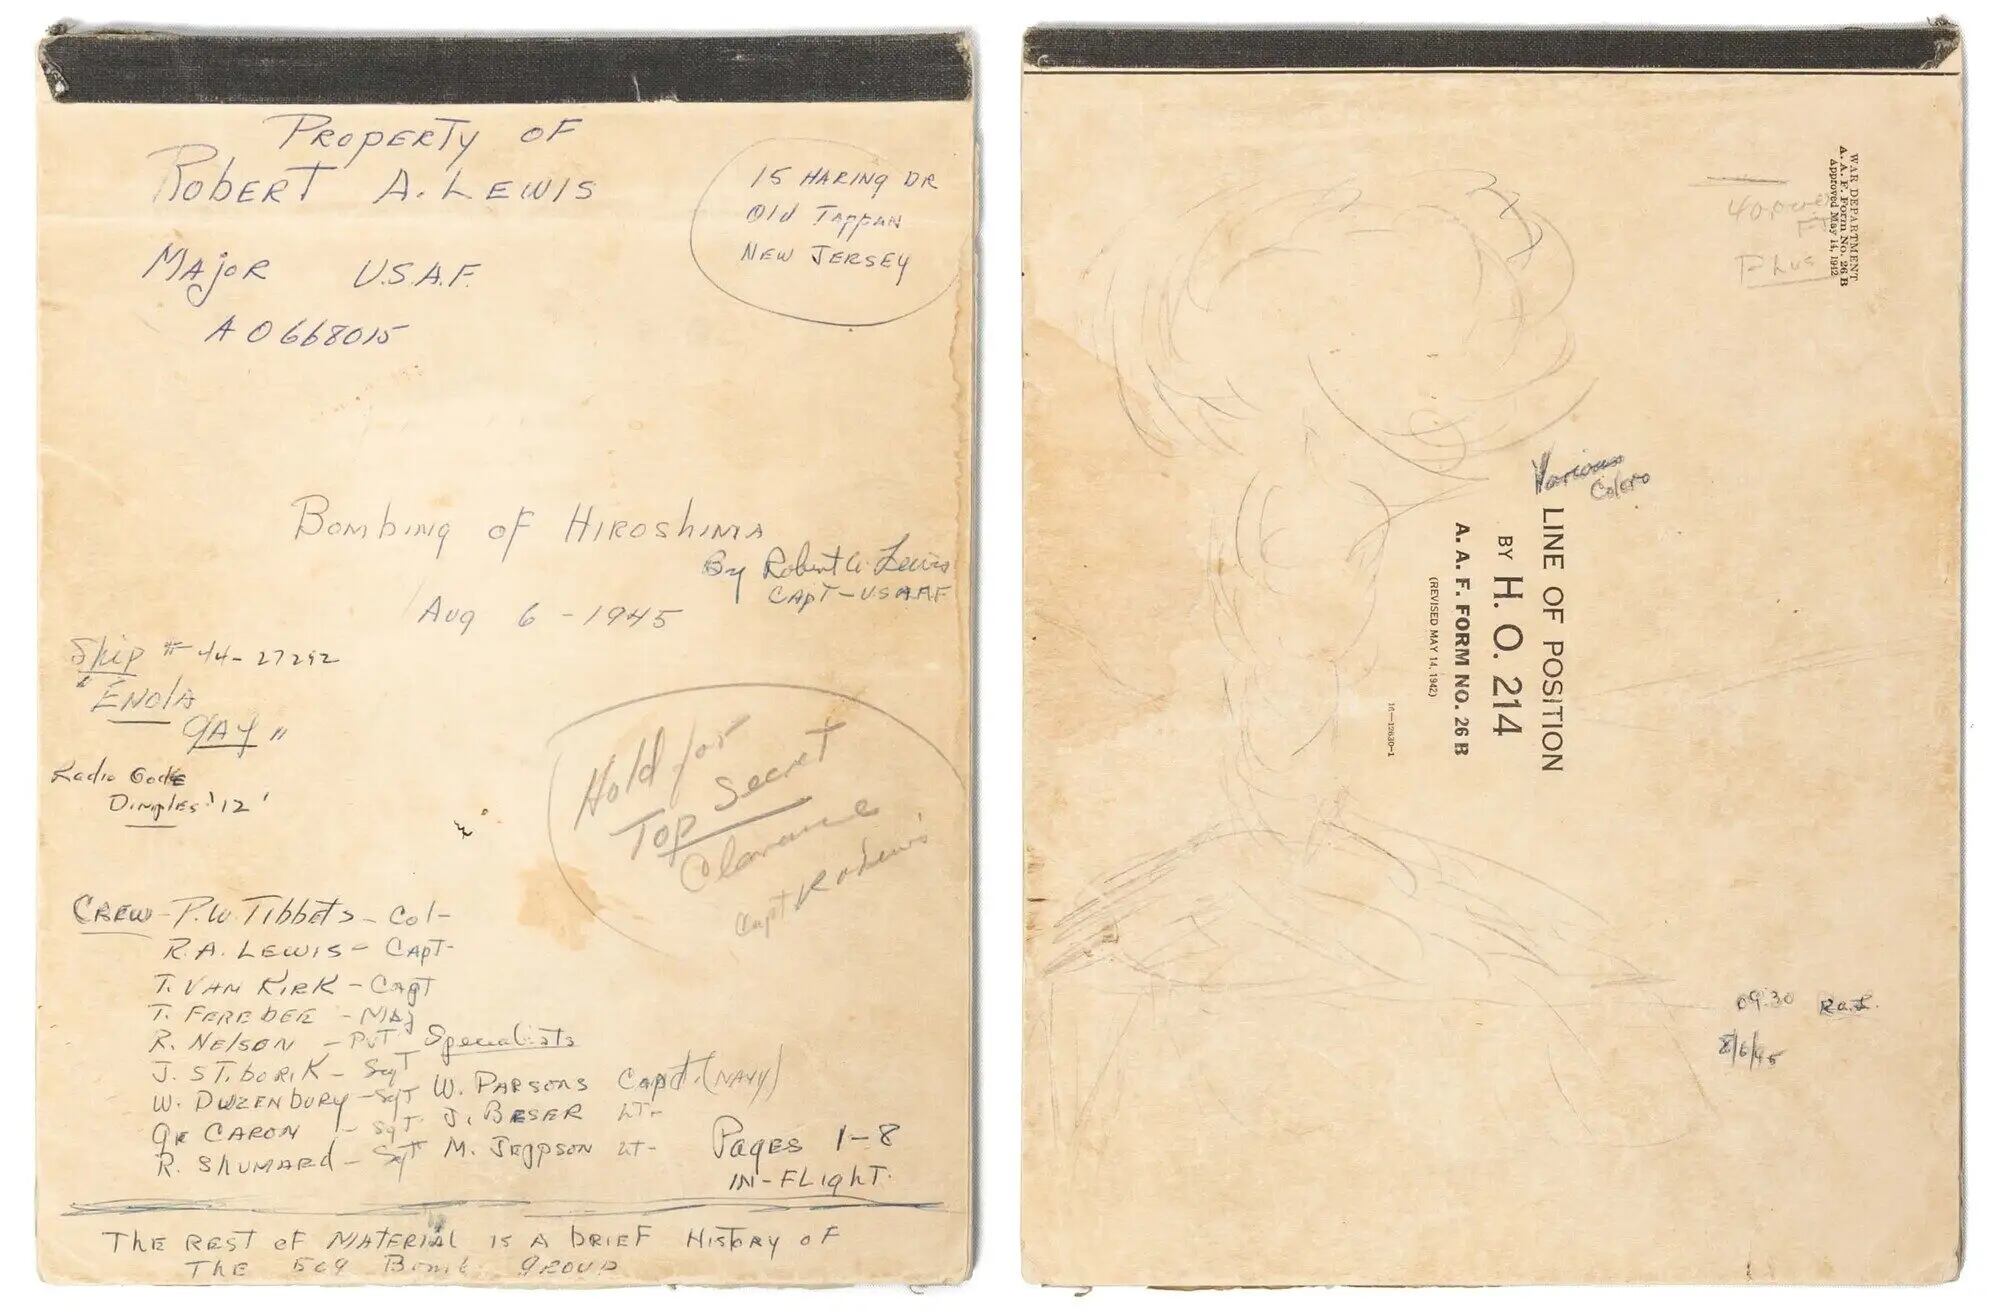 PROPERTY OF
ROBERT A. LEWIS
15 HARING DR
Old TAPPAN
NEW JERSEY
MAJOR U.S.A.F.
AO668015
BOMBING OF HIROSHIMA
By Robert A. Lewis
CAPT - USAAF
AUG 6 - 1945
Ship # 44-27292
"ENOLA
GAY"
Radio Code
DIMPLES '12'
Hold for
TOP Secret
Clearance
Capt R A Lewis
CREW - P.W. TIBBETS - Col -
R.A. LEWIS - CAPT -
T. VAN KIRK - CAPT
T. FEREBEE - MAJ
R. NELSON - PVT
J. STIBORIK - SGT
W. DUZENBURY - SGT
GR CARON - SGT
R. SHUMARD - SGT
Specialists
W. PARSONS CAPT. (NAVY)
J. BESER LT -
M. JEPPSON LT -
PAGES 1-8
IN-FLIGHT.
THE REST OF MATERIAL IS A BRIEF HISTORY OF
THE 509 BOMB GROUP
WAR DEPARTMENT
A. A. F. Form No. 26 B
Approved May 14, 1942
Plus
Various
Colors
LINE OF POSITION
BY H. O. 214
A. A. F. FORM NO. 26 B
(REVISED MAY 14, 1942)
16—12630-1
09:30 R.a.L.
8/6/45